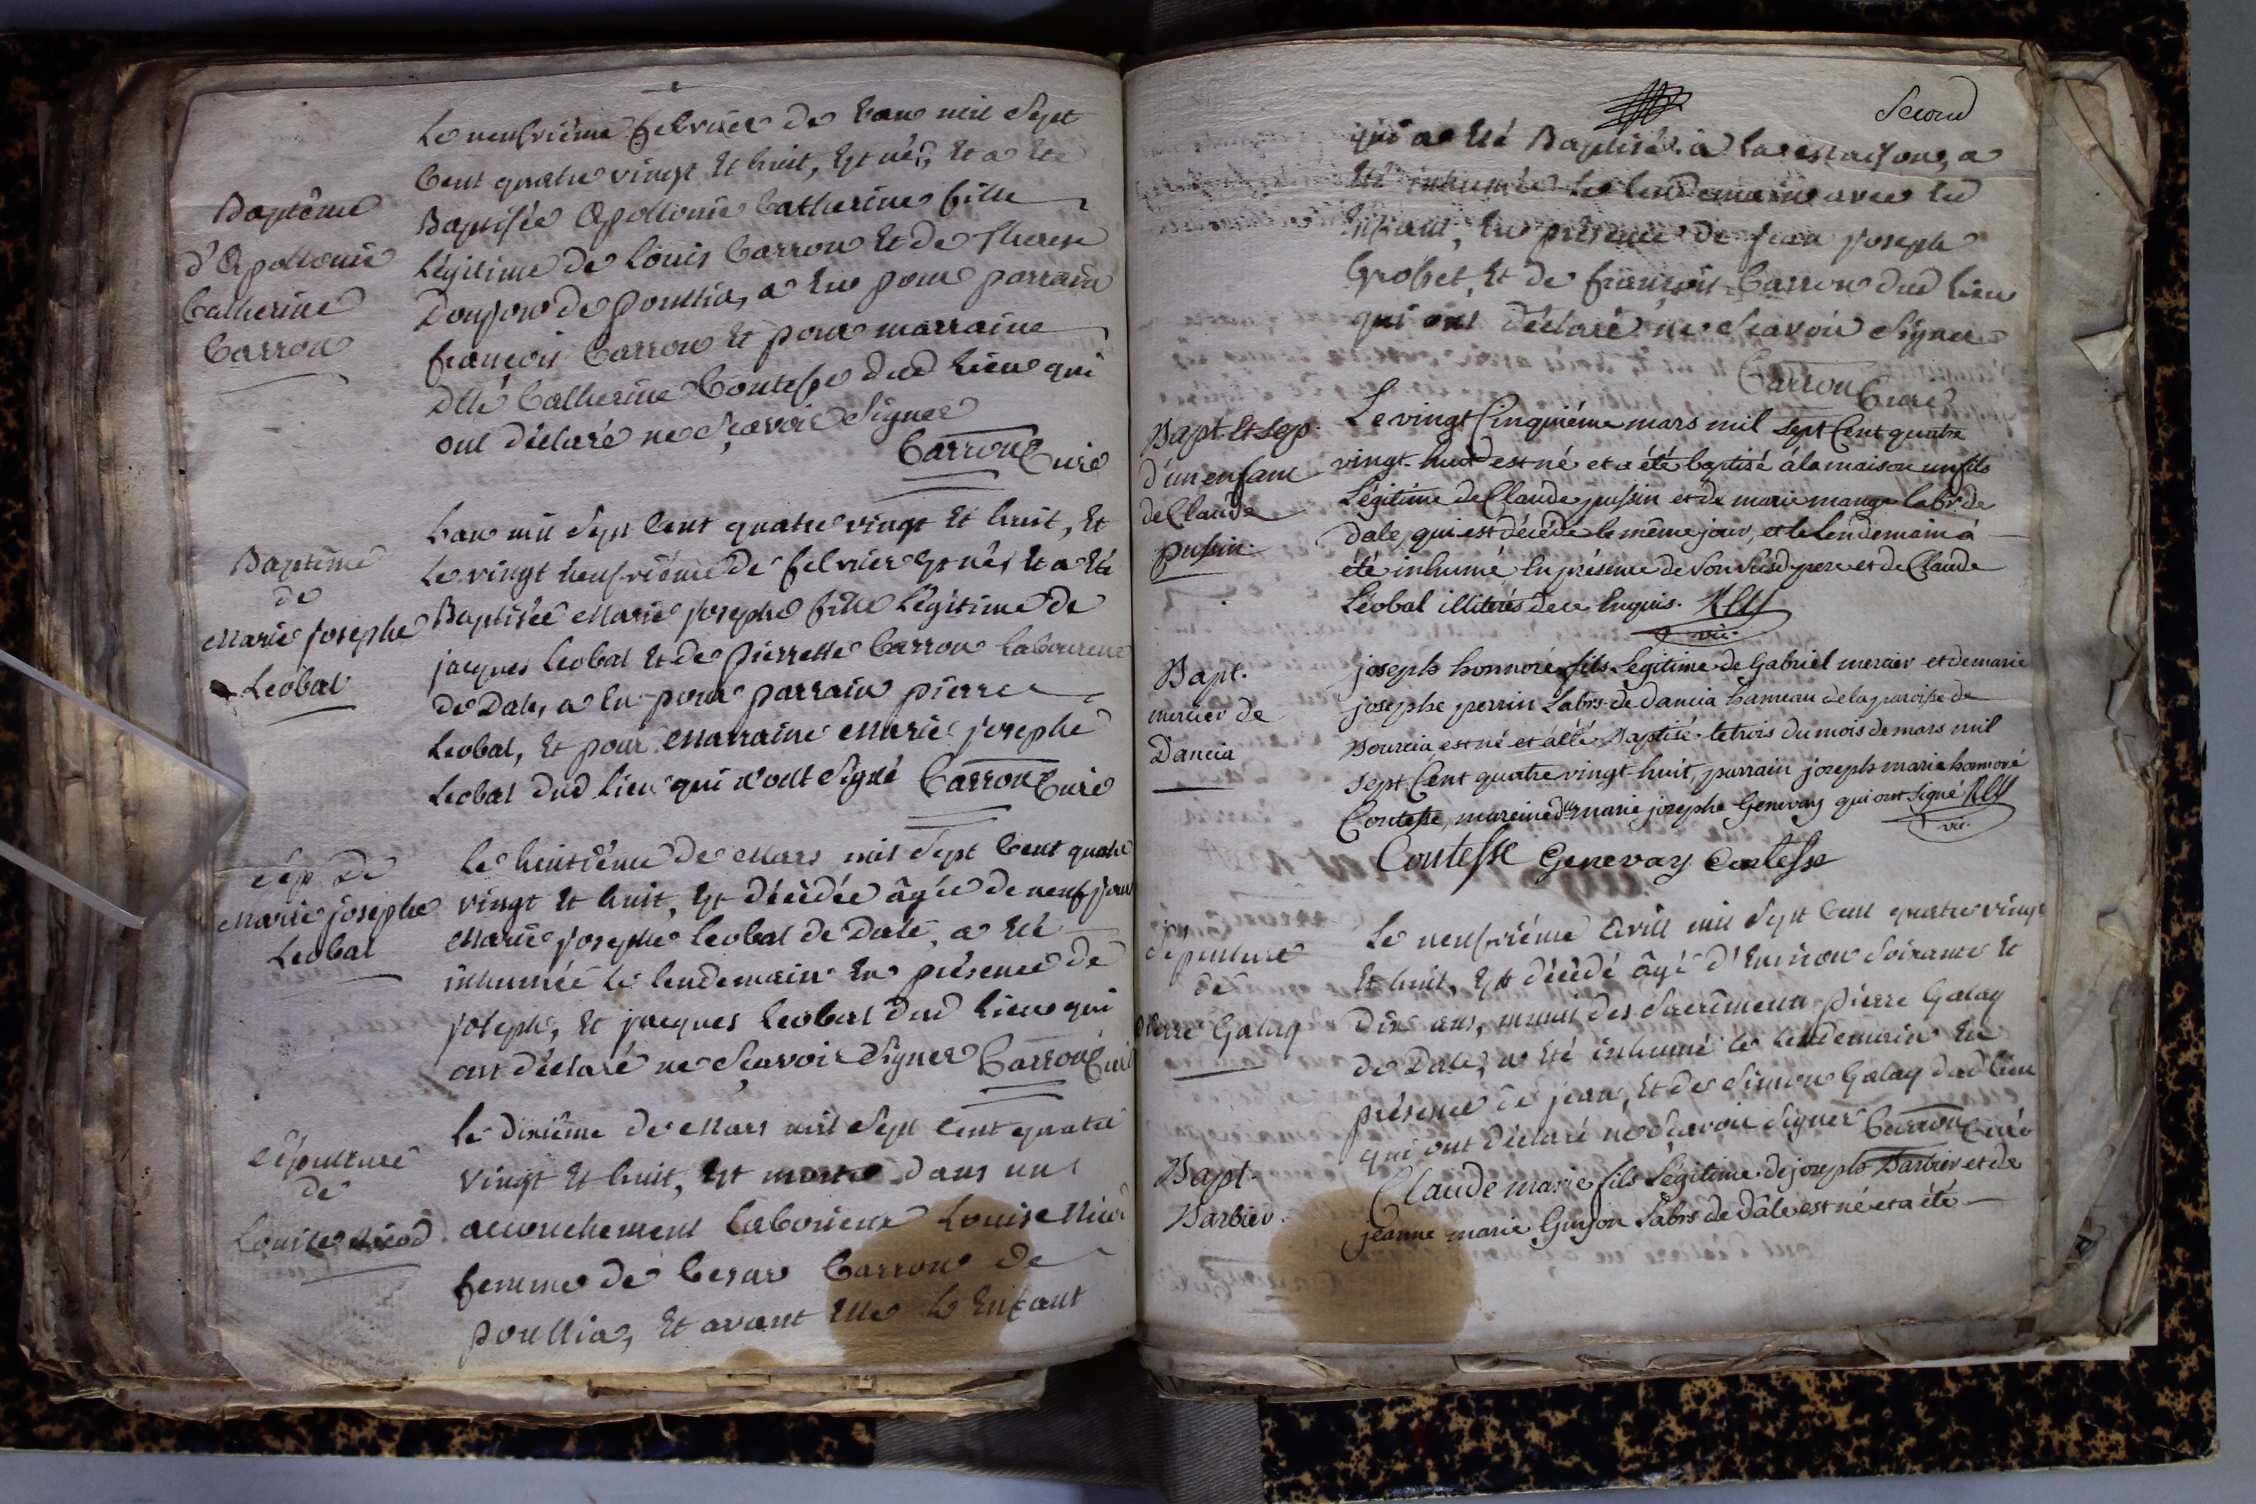 Baptême
d'Apollonie
Catherine
Carron
Le neufvième febvrier de l'an mil sept
Cent quatre vingt Et huit, Est née, Et a Eté
Baptisée Apollonie Catherine fille
Légitime de Louis Carron Et de Therese
Donjon de poullia, a Eu pour parrain
françois Carron Et pour marraine
Dlle Catherine Contesse dud Lieu qui
ont déclaré ne sçavoir signer
Carron Curé
Baptême
de
Marie josephe
Leobal
L'an mil sept Cent quatre vingt Et huit, Et
Le vingt neufvième de febvrier Est née, Et a Eté
Baptisée Marie josephe fille Légitime de
jacques Leobal Et de Pierrette Carron Laboureur
de Dale, a Eu pour parrain pierre
Leobal, Et pour Marraine Marie josephe
Leobal dud Lieu qui n'ont signé Carron Curé
Sép. de
Marie josephe
Leobal
Le huitième de Mars mil sept Cent quatre
vingt Et huit, Est décédée âgée de neuf jours
Marie josephe Leobal de Dale, a Eté
inhumée Le lendemain En présence de
joseph, Et jacques Leobal dud Lieu qui
ont déclaré ne sçavoir signer Carron Curé
Sépulture
de
Louise Nicod
Le dixième de Mars mil sept Cent quatre
vingt Et huit, Est morte dans un
accouchement Laborieux Louise Nicod
femme de Cesar Carron de
poullia, Et avant Elle L'Enfant
Second
qui a Eté Baptisé à la maison, a
Eté inhumée Le lendemain avec led
Enfant, En présence de jean joseph
Grobet, Et de françois Carron dud Lieu
qui ont déclaré ne sçavoir signer
Carron Curé
Bapt. Et Sep.
d'un enfant
de Claude
pussin.
Le vingt Cinquiéme mars mil sept Cent quatre
vingt-huit est né et a été baptisé à la maison un fils
Légitime de Claude pussin et de marie mange labrs de
Dale, qui est décédé le même jour, et le Lendemain a
été inhumé En présence de son susd. pere et de Claude
Léobal illiterés de ce Enquis.
vic.
Bapt.
mercier de
Dancia
joseph honnoré fils Légitime de Gabriel mercier et de marie
josephe perrin Labrs de dancia hameau de la paroisse de
Bourcia est né et a été Baptisé le trois du mois de mars mil
sept Cent quatre vingt-huit, parrain joseph marie honnoré
Contesse, mareine dlle marie josephe Genevay qui ont signé
vic.
Contesse Genevay Contesse
Sépulture
de
Pierre Galay
Le neufvième Avril mil sept Cent quatre vingt
Et huit, Est décédé âgé d'Environ soixante Et
dix ans, muni des Sacrements pierre Galay
de Dale, a Eté inhumé le Lendemain En
présence de jean, Et de Simon Galay dud lieu
qui ont déclaré ne sçavoir signer Carron Curé
Bapt.
Barbier.
Claude marie fils Légitime de joseph Barbier et de
jeanne marie Guyon Labrs de Dale est né et a été